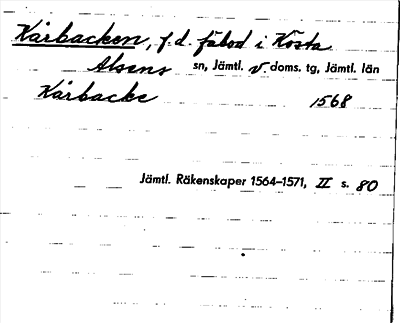 Kårbacken, f.d. fäbod i Kösta
Alsens sn, Jämtl. v. doms. tg, Jämtl. län
Kårbacke 1568
Jämtl. Räkenskaper 1564–1571, II s. 80